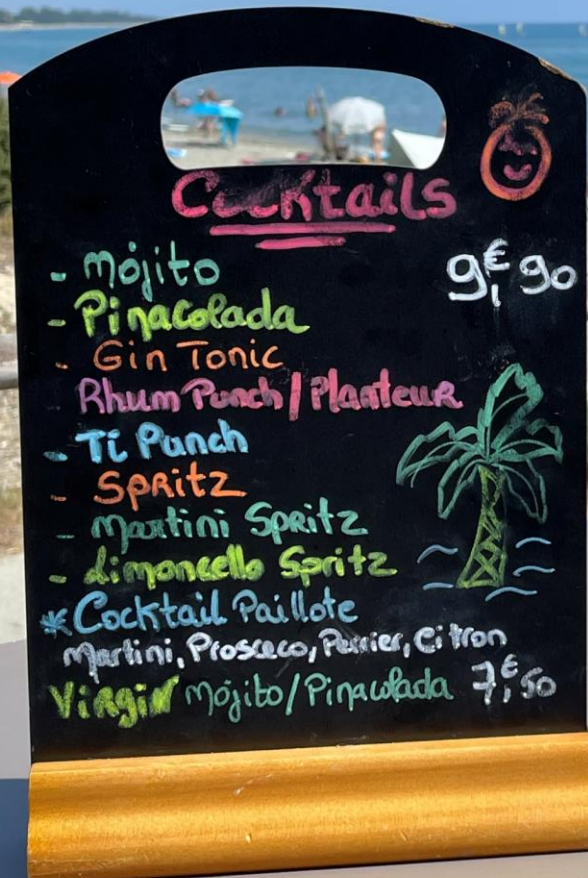 Cocktails
- Mojito 9€,90
- Pinacolada
- Gin Tonic
Rhum Punch / Planteur
- Ti Punch
- Spritz
- Martini Spritz
- Limoncello Spritz
* Cocktail Paillote
Martini, Prosceco, Perrier, Citron
Virgin Mojito / Pinacolada 7€,50